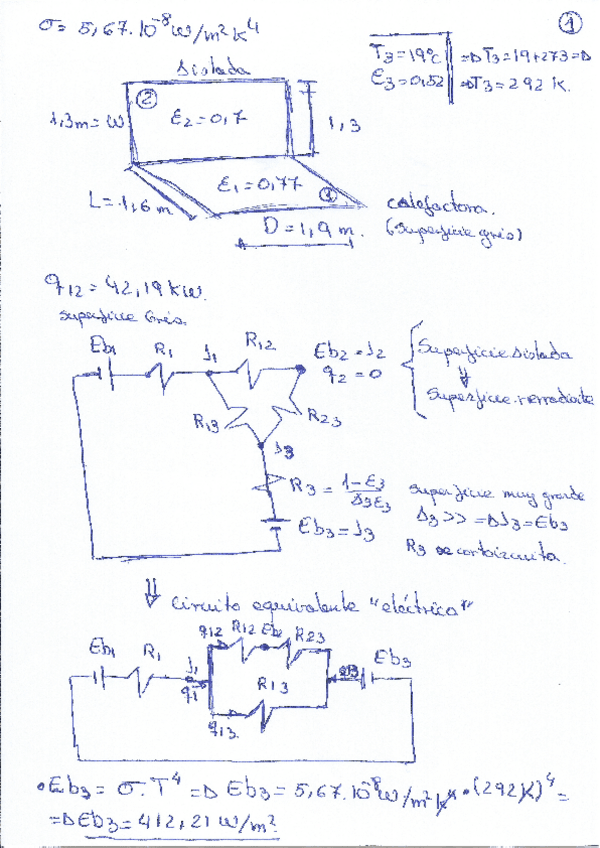 σ = 5,67.10⁻⁸ W/m² K⁴
①
T3 = 19ºC ⇒ T3 = 19+273 ⇒
ε3 = 0,52 ⇒ T3 = 292 K.
aislada
②
1,3m = W
ε2 = 0,7
1,3
ε1 = 0,77
①
L = 1,6 m
D = 1,9 m.
calefactora.
(superficie gris)
q12 = 42,19 kW.
superficie Gris.
Eb1 R1 J1 R12
Eb2 = J2
q2 = 0
Superficie aislada
⇓
Superficie rerradiante
R13 R23
J3
R3 = 1-ε3 / A3ε3
superficie muy grande
A3 >> ⇒ J3 = Eb3
Eb3 = J3
R3 se cortocircuita.
⇓ Circuito equivalente "eléctrico"
q12 R12 Eb2 R23
Eb1 R1 J1
q1
Eb3
R13
q13
• Eb3 = σ.T⁴ ⇒ Eb3 = 5,67.10⁻⁸ W/m² K⁴ . (292K)⁴ =
⇒ Eb3 = 412,21 W/m².